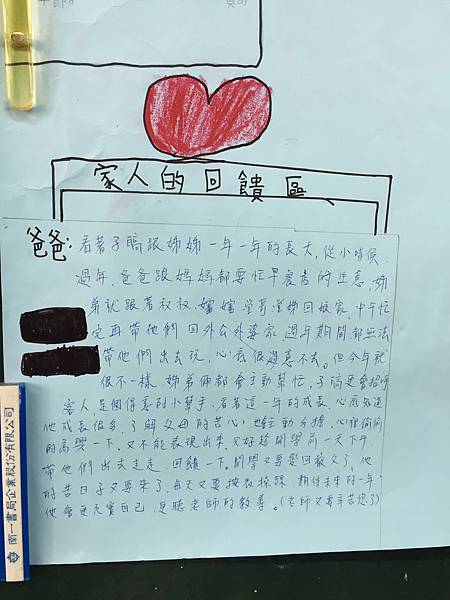 家人的回饋區
爸爸:看著子皜跟姊姊一年一年的長大,從小時候
過年,爸爸跟媽媽都要忙早餐店的生意,姊
弟就跟著叔叔、嬸嬸、堂哥堂姊回娘家,中午忙
完再帶他們回外公外婆家,過年期間都無法
帶他們出去玩,心底很過意不去。但今年就
很不一樣,姊弟倆都會主動幫忙,子皜更會招呼
客人,是個得意的小幫手,看著這一年的成長,心底知道
他成長很多,了解父母的苦心,也主動分擔,心裡偷偷
的高興一下,又不能表現出來,只好趁開學前一天下午
帶他們出去走走,回饋一下。開學又要變回嚴父了,他
的苦日子又要來了,每天又要按表操課,期待未來的一年,
他會更充實自己,更聽老師的教導。(老師又要辛苦您了)
南一書局企業股份有限公司